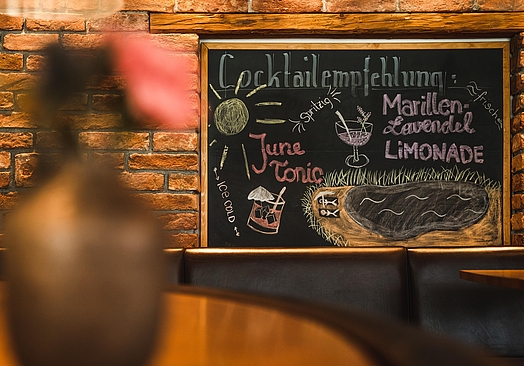 Cocktailempfehlung:
Spritzig
~frisch~
Marillen-
Lavendel
LIMONADE
June
Tonic
ICE COLD